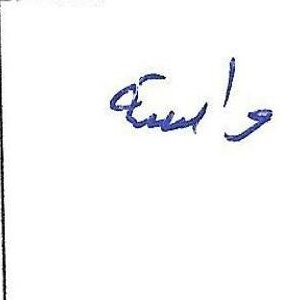 واسعة